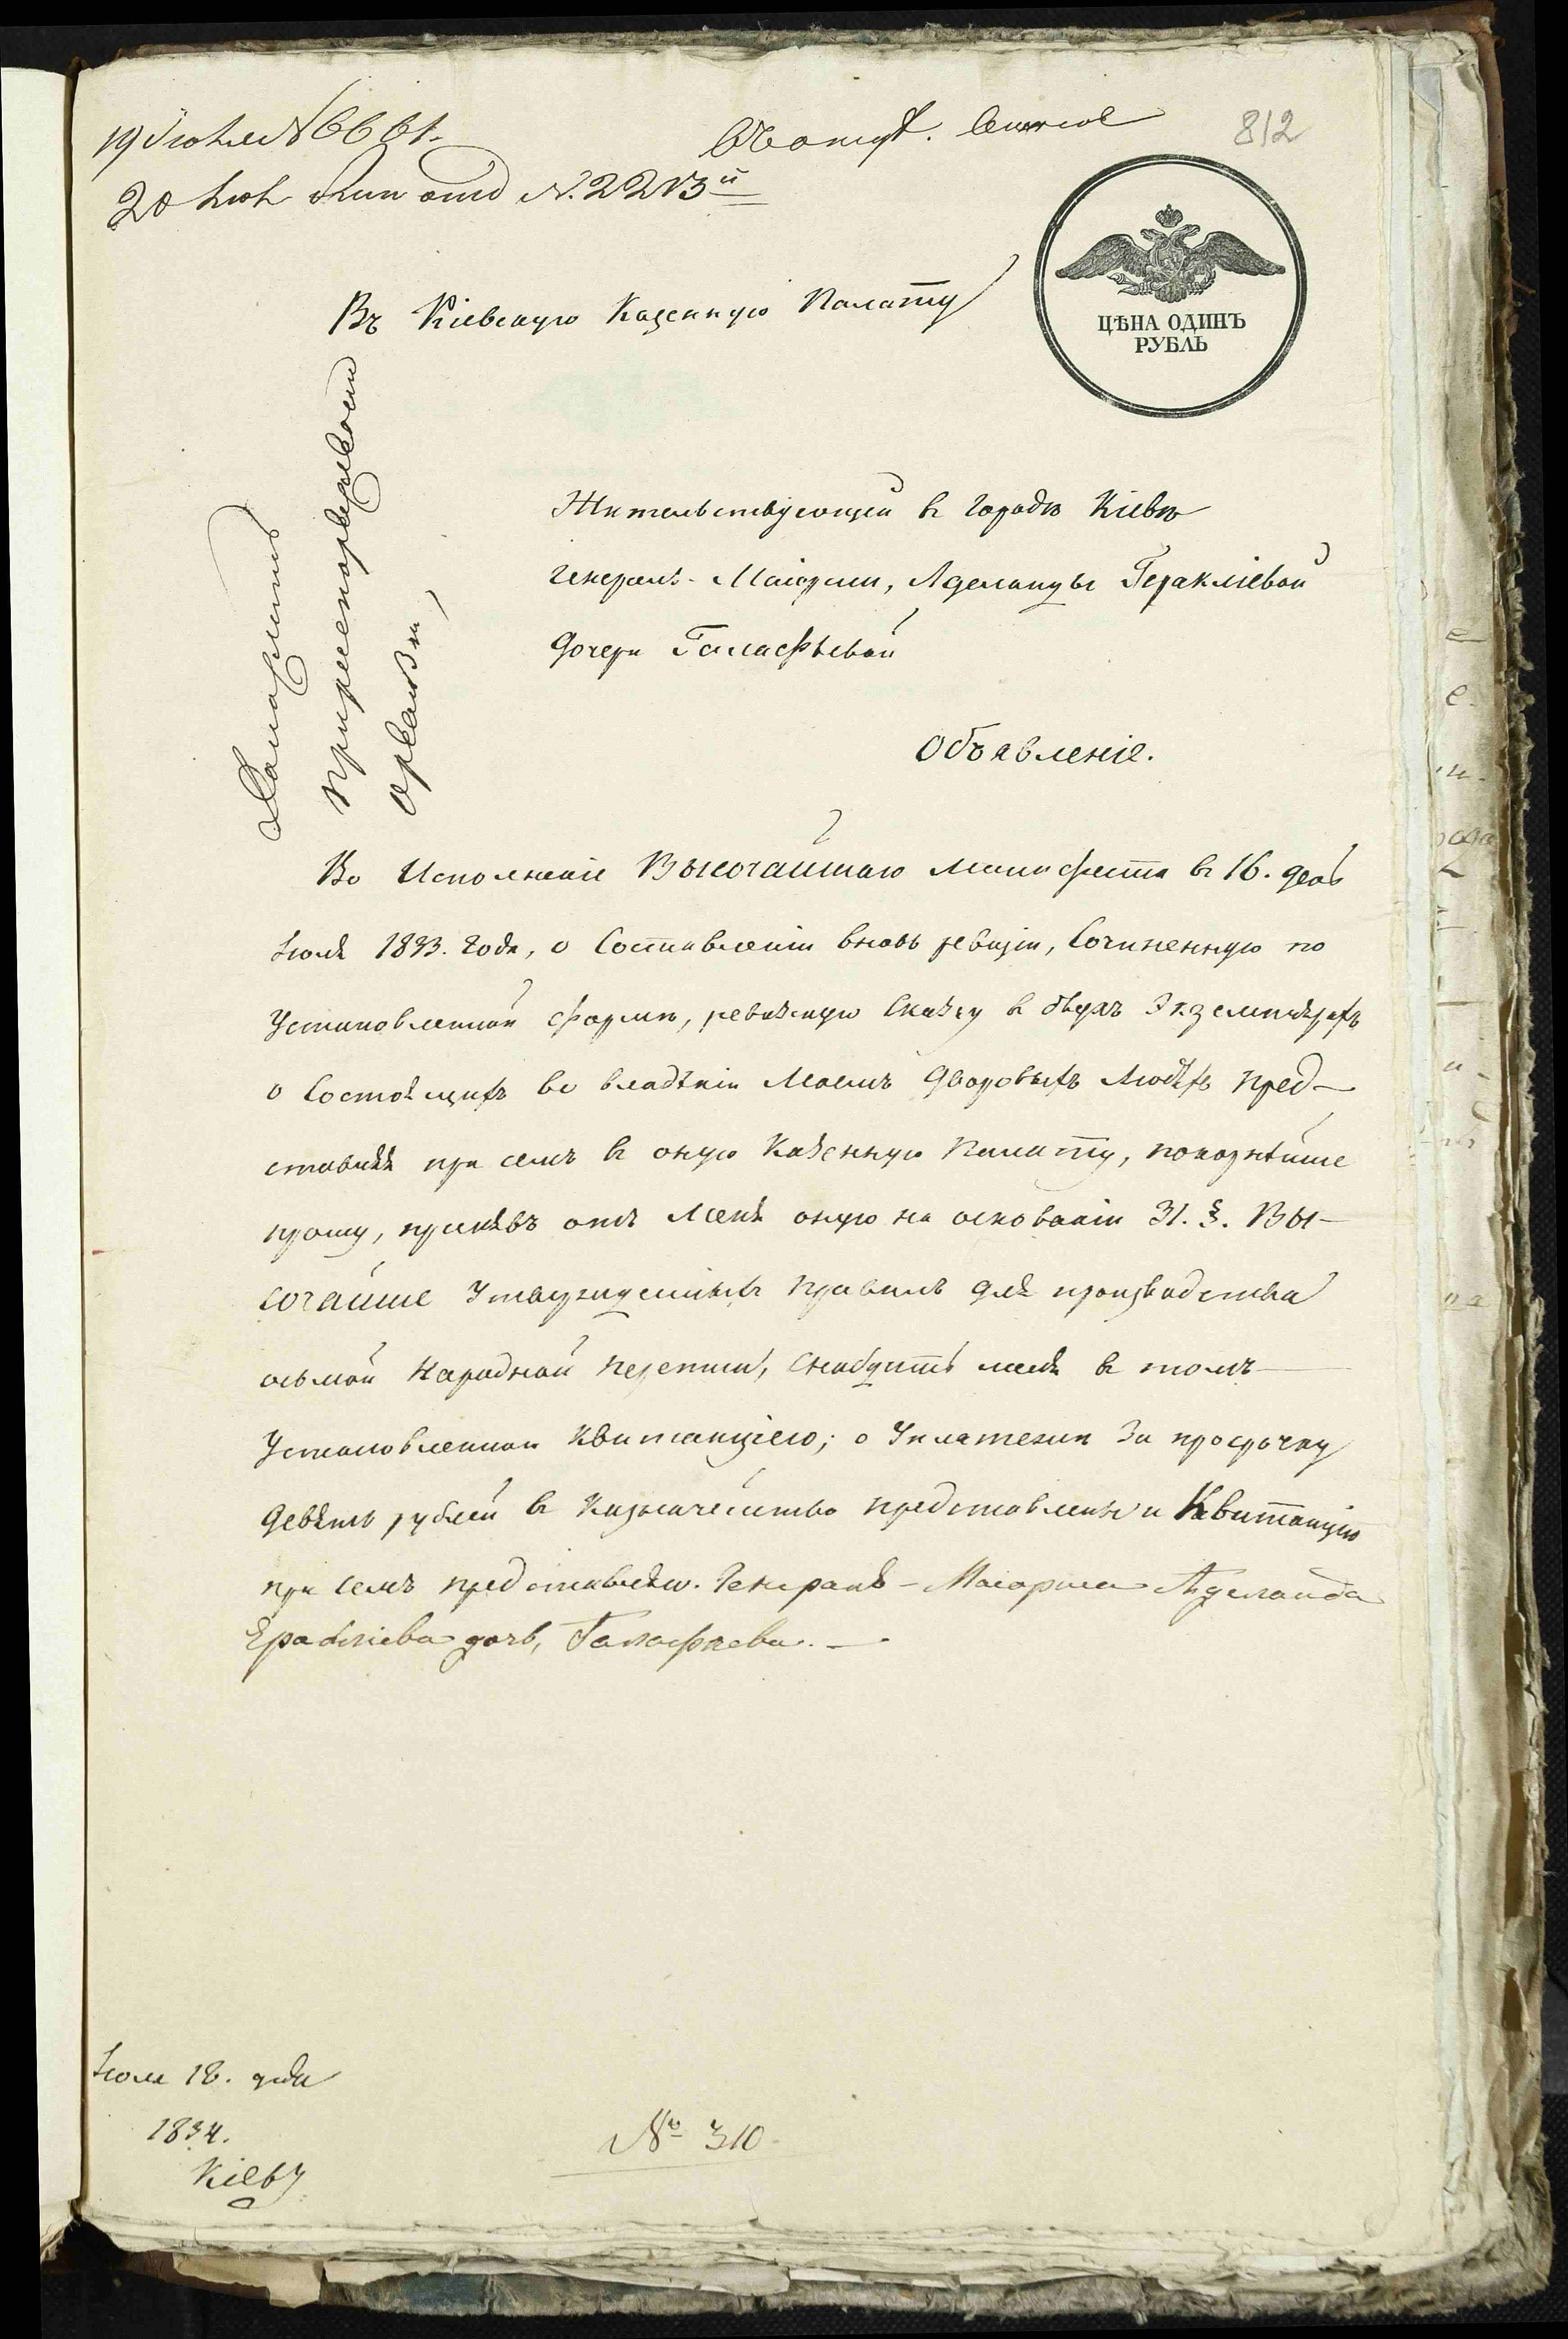 19 Июля № 6661.
20 Июл отд № 2213й
812
Въ Кіевскую Казенную Палату
ЦѢНА ОДИНЪ
РУБЛЬ
Жительствующей въ городѣ Кіевѣ
Генералъ-Маіорши, Аделаиды Геракліевой
дочери Галафѣевой
Объявленіе.
Во Исполненіе Высочайшаго манифеста въ 16. день
Іюня 1833. года, о Составленіи вновь ревизіи, Сочиненную по
Установленной формѣ, ревизскую Сказку въ двухъ Экземплярахъ
о Состоящихъ во владѣніи Моемъ Дворовыхъ Людяхъ пред-
ставляя при семъ въ оную Казенную Палату, покорнѣйше
прошу, принявъ отъ Меня оную на основаніи 31. §. Вы-
сочайше Утвержденныхъ Правилъ для производства
осьмой Народной переписи, снабдить меня въ томъ
Установленной Квитанціею; о Уплатежи За просрочку
девять рублей въ Казначейство представлены и Квитанцію
при семъ представляю. Генералъ-Маіорша Аделаида
Ераклiева дочь, Галафѣева.
Іюля 18. дня
1834.
Кіевъ
№ 310